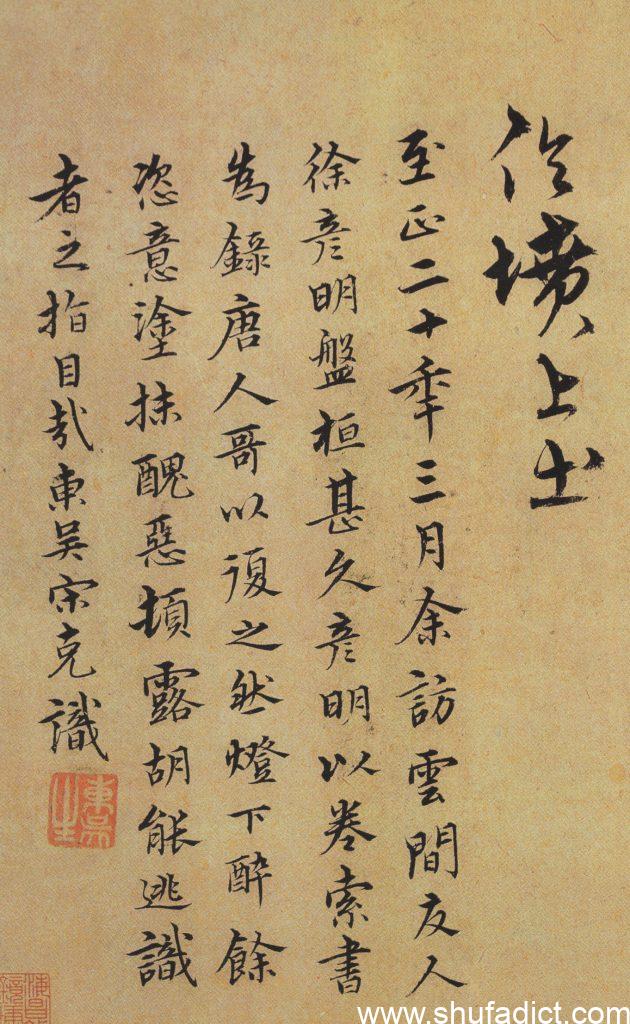 伶墳上土
至正二十秊三月余訪雲間友人
徐彥明盤桓甚久彥明以卷索書
為錄唐人哥以復之然燈下醉餘
恣意塗抹醜惡頓露胡能逃識
者之指目哉東吳宋克識
東吳
www.shufadict.com